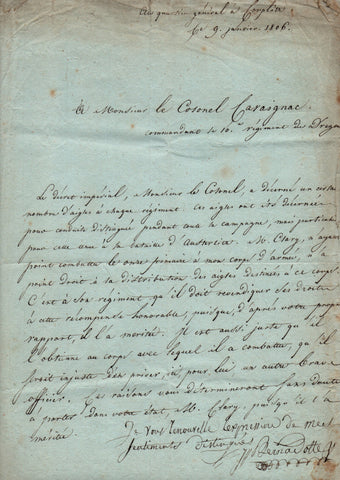 Au quartier général à
le 9. janvier 1806.
A Monsieur le Colonel Cavaignac.
commandant le 10.e régiment de Drago
Le décret impérial, Monsieur le Colonel, a décerné un certain
nombre d'aigles à chaque régiment. Ces aigles ont été décernées
pour conduite distinguée pendant toute la campagne, mais particulièr
pour celle tenue à la bataille d'Austerlitz. M. Clary, n'ayant
point combattu le onze frimaire à mon corps d'armée, n'a
point droit à la distribution des aigles destinées à ce corps.
C'est à son régiment, qu'il doit revendiquer ses droits
à cette récompense honorable, puisque, d'après votre propre
rapport, il l'a méritée. Il est aussi juste qu'il
l'obtienne au corps avec lequel il a combattu, qu'il
serait injuste d'en priver, ici, pour lui, un autre brave
officier. Ces raisons vous détermineront sans doute
à porter dans votre état, M. Clary, puisqu'il l'a
méritée.
Je vous renouvelle l'expression de mes
sentiments d'estime
Bernadotte